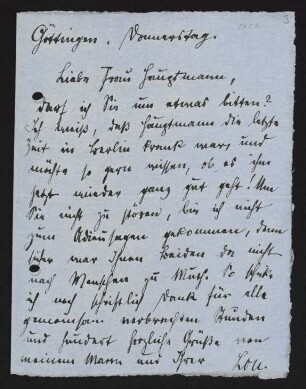 Göttingen. Donnerstag.
Liebe Frau Hauptmann,
darf ich Sie um etwas bitten?
Ich weiß, daß Hauptmann die letzte
Zeit in Berlin krank war, und
möchte so gern wissen, ob es ihm
jetzt wieder ganz gut geht! Um
Sie nicht zu stören, bin ich nicht
zum Adieusagen gekommen, denn
sicher war Ihnen Beiden da nicht
nach Menschen zu Mut. So
ich noch schriftlich Dank für alle
gemeinsam verbrachten Stunden
und hundert herzliche Grüße von
meinem Mann und Ihrer